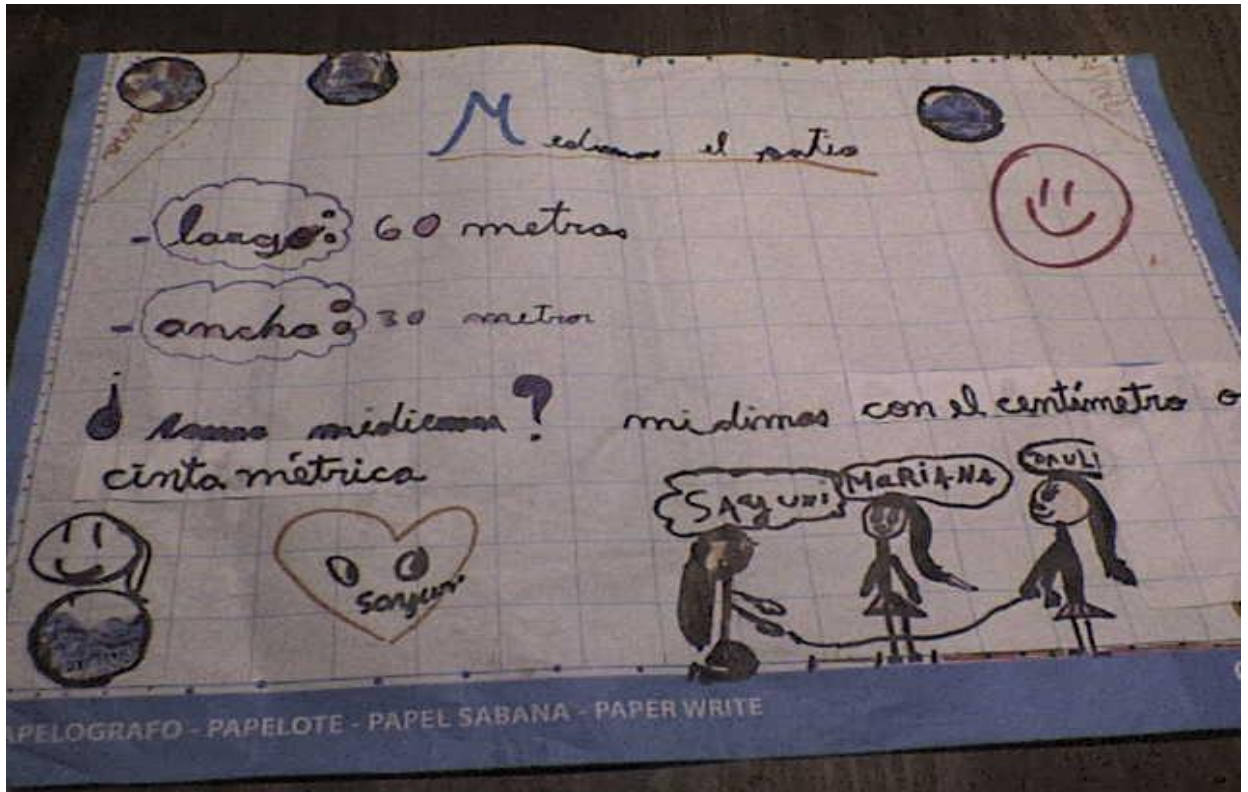 Medimos el patio
- largo: 60 metros
- ancho: 30 metros
¿ midieron? midimos con el centímetro o
cinta métrica
Sayuri MARIANA PAULI
Sayuri
APELOGRAFO - PAPELOTE - PAPEL SABANA - PAPER WRITE